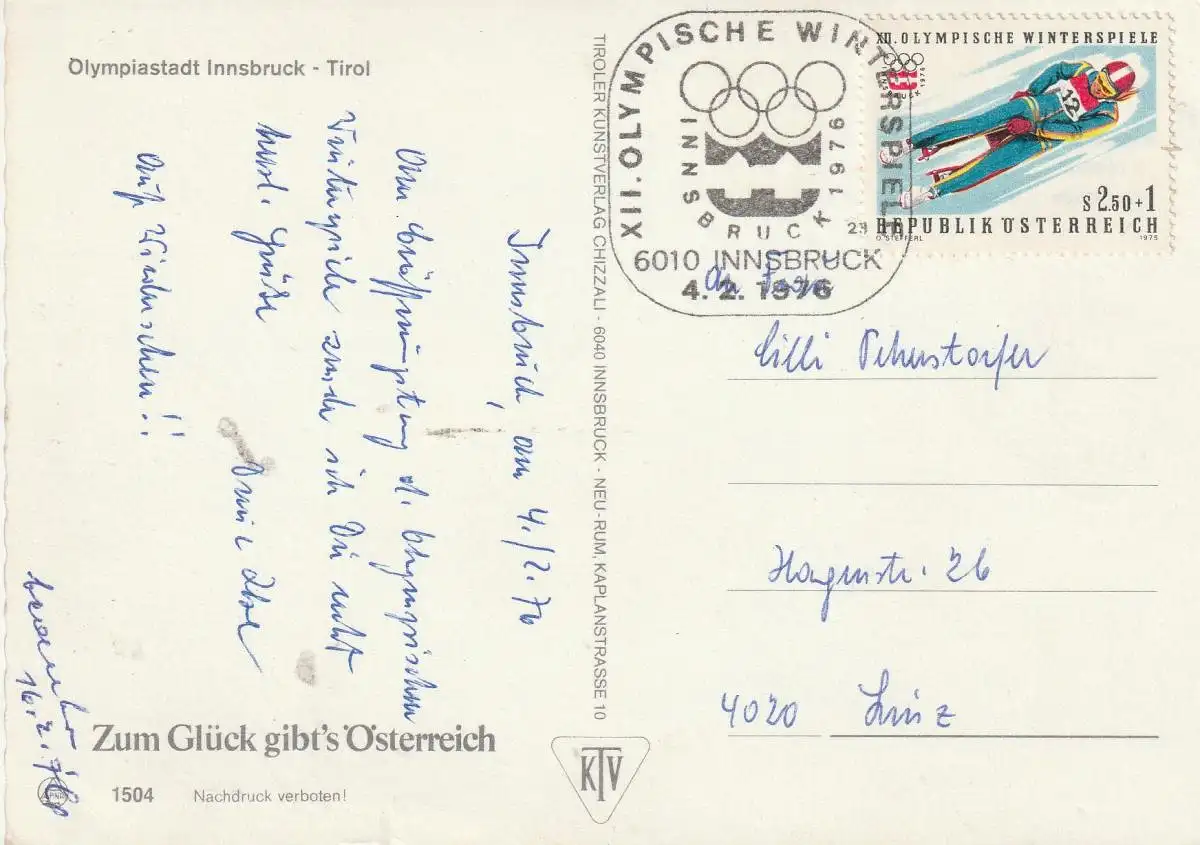 Olympiastadt Innsbruck - Tirol
Innsbruck, am 4./2. 76
Am Eröffnungstag d. Olympischen
Winterspiele sende ich Dir recht
herzl. Grüße
Auf Wiedersehen!!
16. 2. 76
Zum Glück gibt's Österreich
1504 Nachdruck verboten!
TIROLER KUNSTVERLAG CHIZZALI - 6040 INNSBRUCK - NEU-RUM, KAPLANSTRASSE 10
KTV
XII. OLYMPISCHE WINTERSPIELE
INNSBRUCK 1976
6010 INNSBRUCK
4. 2. 1976
XII. OLYMPISCHE WINTERSPIELE
INNSBRUCK 1976
12
S 2.50+1
REPUBLIK ÖSTERREICH
O. STEFFERL 1975
An Frau
Cilli
Hagenstr. 26
4020 Linz